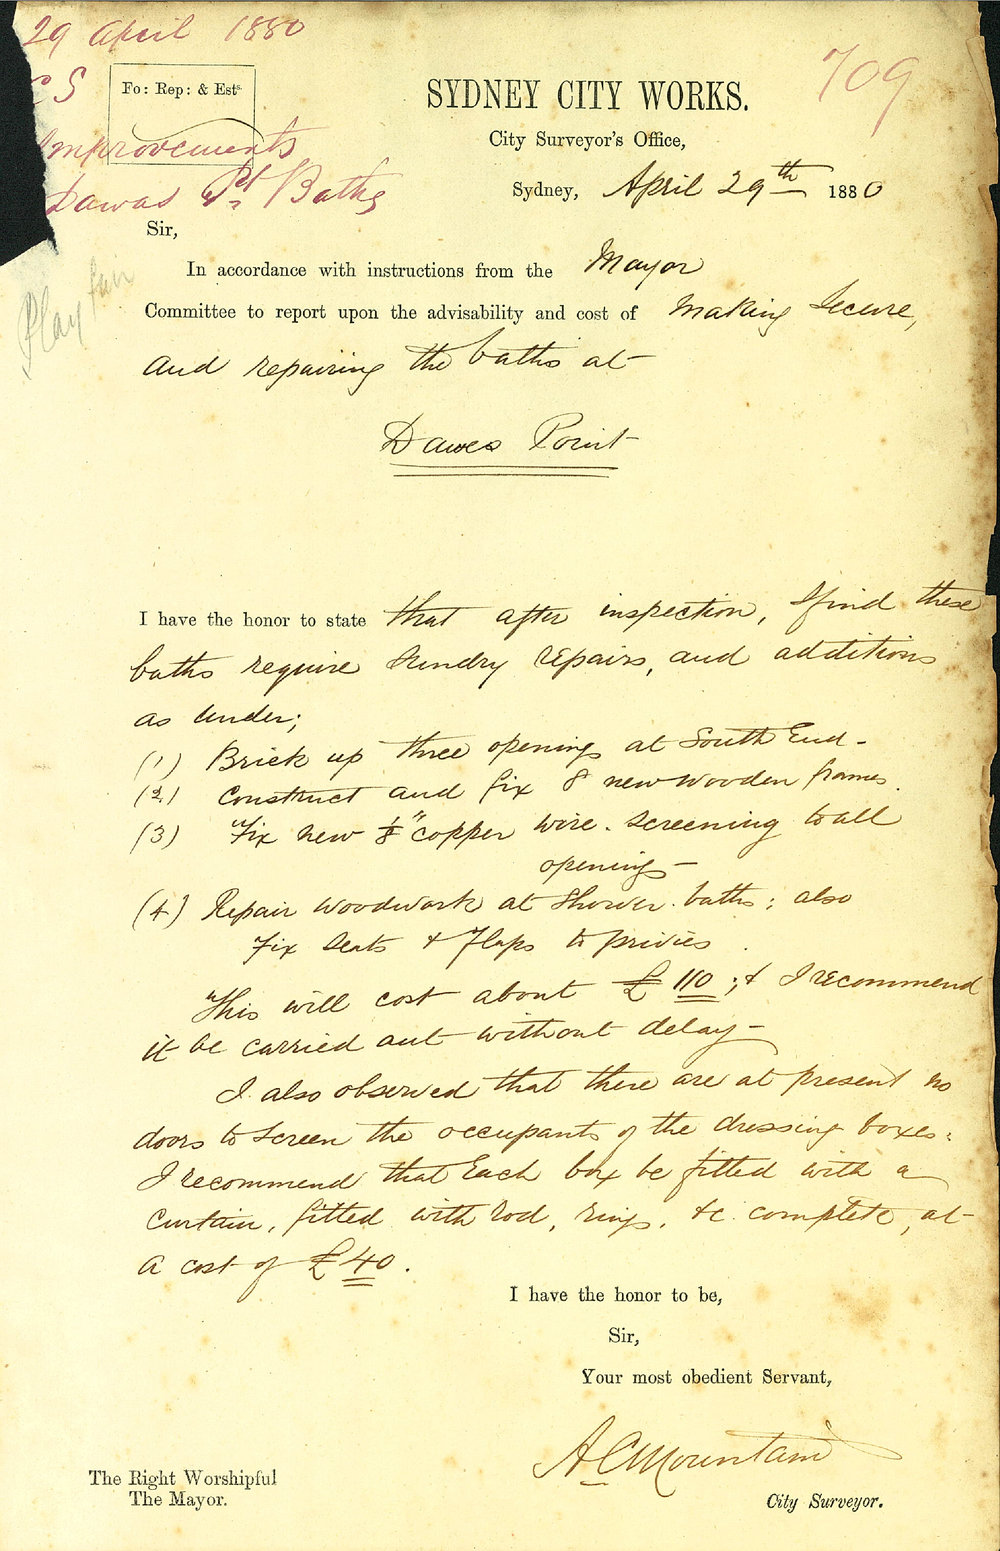 29 April 1880
CS
Fo: Rep: & Ests.
709
Improvements
Dawas Pt. Baths
Playfair
SYDNEY CITY WORKS.
City Surveyor's Office,
Sydney, April 29th 1880
Sir,
In accordance with instructions from the Mayor
Committee to report upon the advisability and cost of making secure,
and repairing the baths at
Dawes Point
I have the honor to state that after inspection, I find these
baths require sundry repairs, and additions
as under;
(1) Brick up three openings at South End -
(2) Construct and fix 8 new wooden frames.
(3) Fix new ⅛" copper wire. screening to all
openings -
(4) Repair woodwork at shower. baths; also
Fix seats & Flaps to privies.
This will cost about £110; & I recommend
it be carried out without delay -
I also observed that there are at present no
doors to screen the occupants of the dressing boxes:
I recommend that each box be fitted with a
curtain, fitted with rod, rings, &c. complete, at
a cost of £40.
I have the honor to be,
Sir,
Your most obedient Servant,
A C Mountain
City Surveyor.
The Right Worshipful
The Mayor.